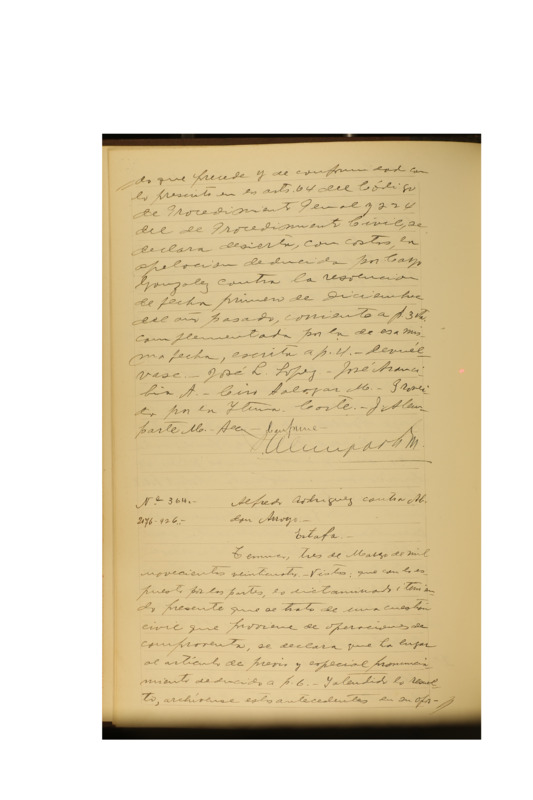 do que precede y de conformidad con
lo prescrito en es arts. 64 del Código
de Procedimiento Penal y 224
del de Procedimiento Civil, se
declara desierta, con costas, la
apelacion deducida por
Gonzalez contra la resolucion
de fecha primero de Diciembre
del año pasado, corriente a p. 3 vta.
complementada por la de esa mis-
ma fecha, escrita a p. 4.- devuél
vase.- José L. Lopez - José Aranci
bia A.- Ciro Salazar M.- Provei
do por la Iltma. Corte.- J. Alem-
parte M.- Secr.- Conforme-
Alemparte M.
Nº 344.-
Alfredo Rodriguez contra M.
2076-926.-
don Arroyo.-
Estafa.-
Temuco, tres de Marzo de mil
novecientos veintiseis.- Vistos: que con lo es
puesto por las partes, lo dictaminado i tenien
do presente que se trata de una cuestion
civil que proviene de operaciones de
compraventa, se declara que ha lugar
al artículo de previo y especial pronuncia
miento deducido a p. 6.- Y atendido lo resuel
to, archívense estos antecedentes en su opor-